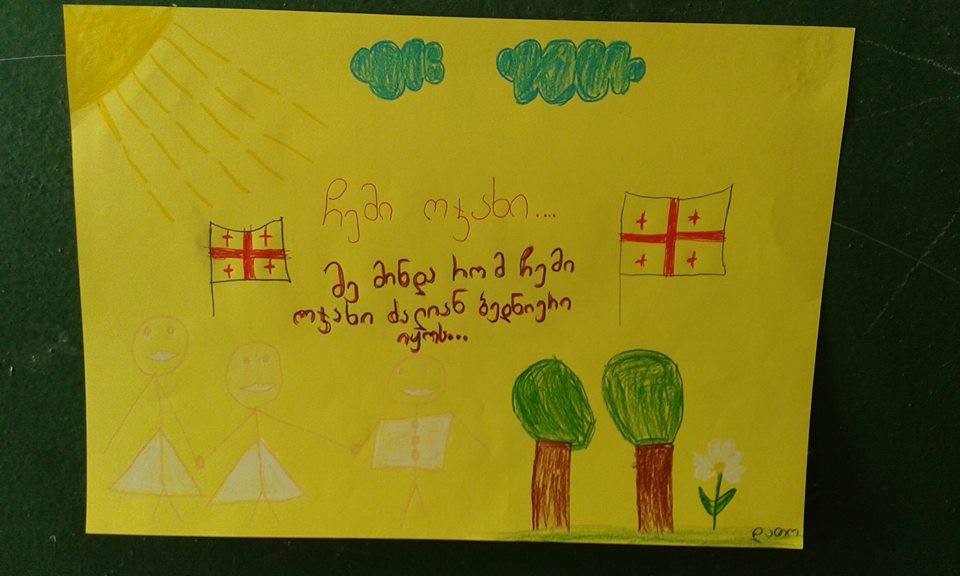 ჩემი ოჯახი....
მე მინდა რომ ჩემი
ოჯახი ძალიან ბედნიერი
იყოს...
დათო